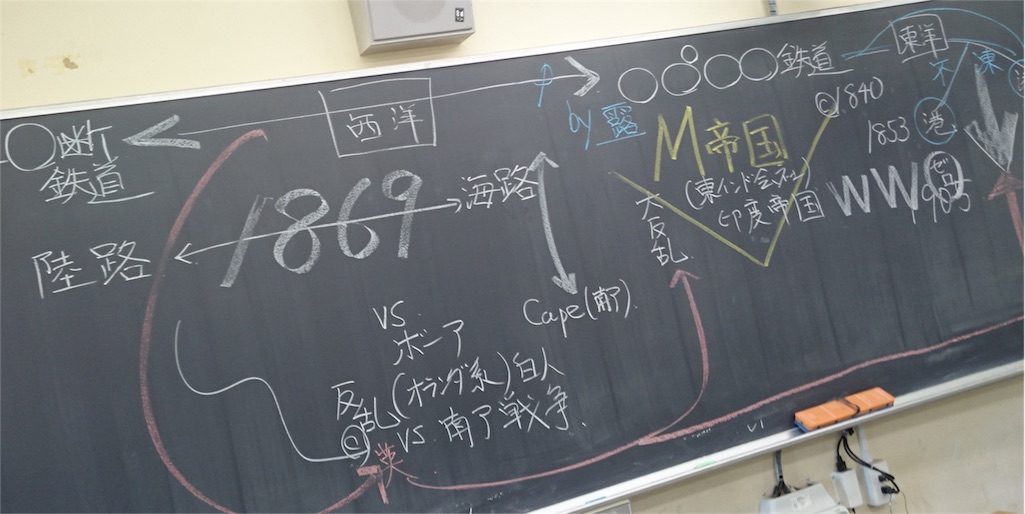 ○断
鉄道
西洋
○○○○鉄道
東洋
by 露
M帝国
(東インド会社)
印度帝国
大反乱
1840
1853
港
不
東
WW
1869
海路
陸路
Cape(南ア).
VS.
ボーア
(オランダ系)白人
反乱
VS. 南ア戦争.
英